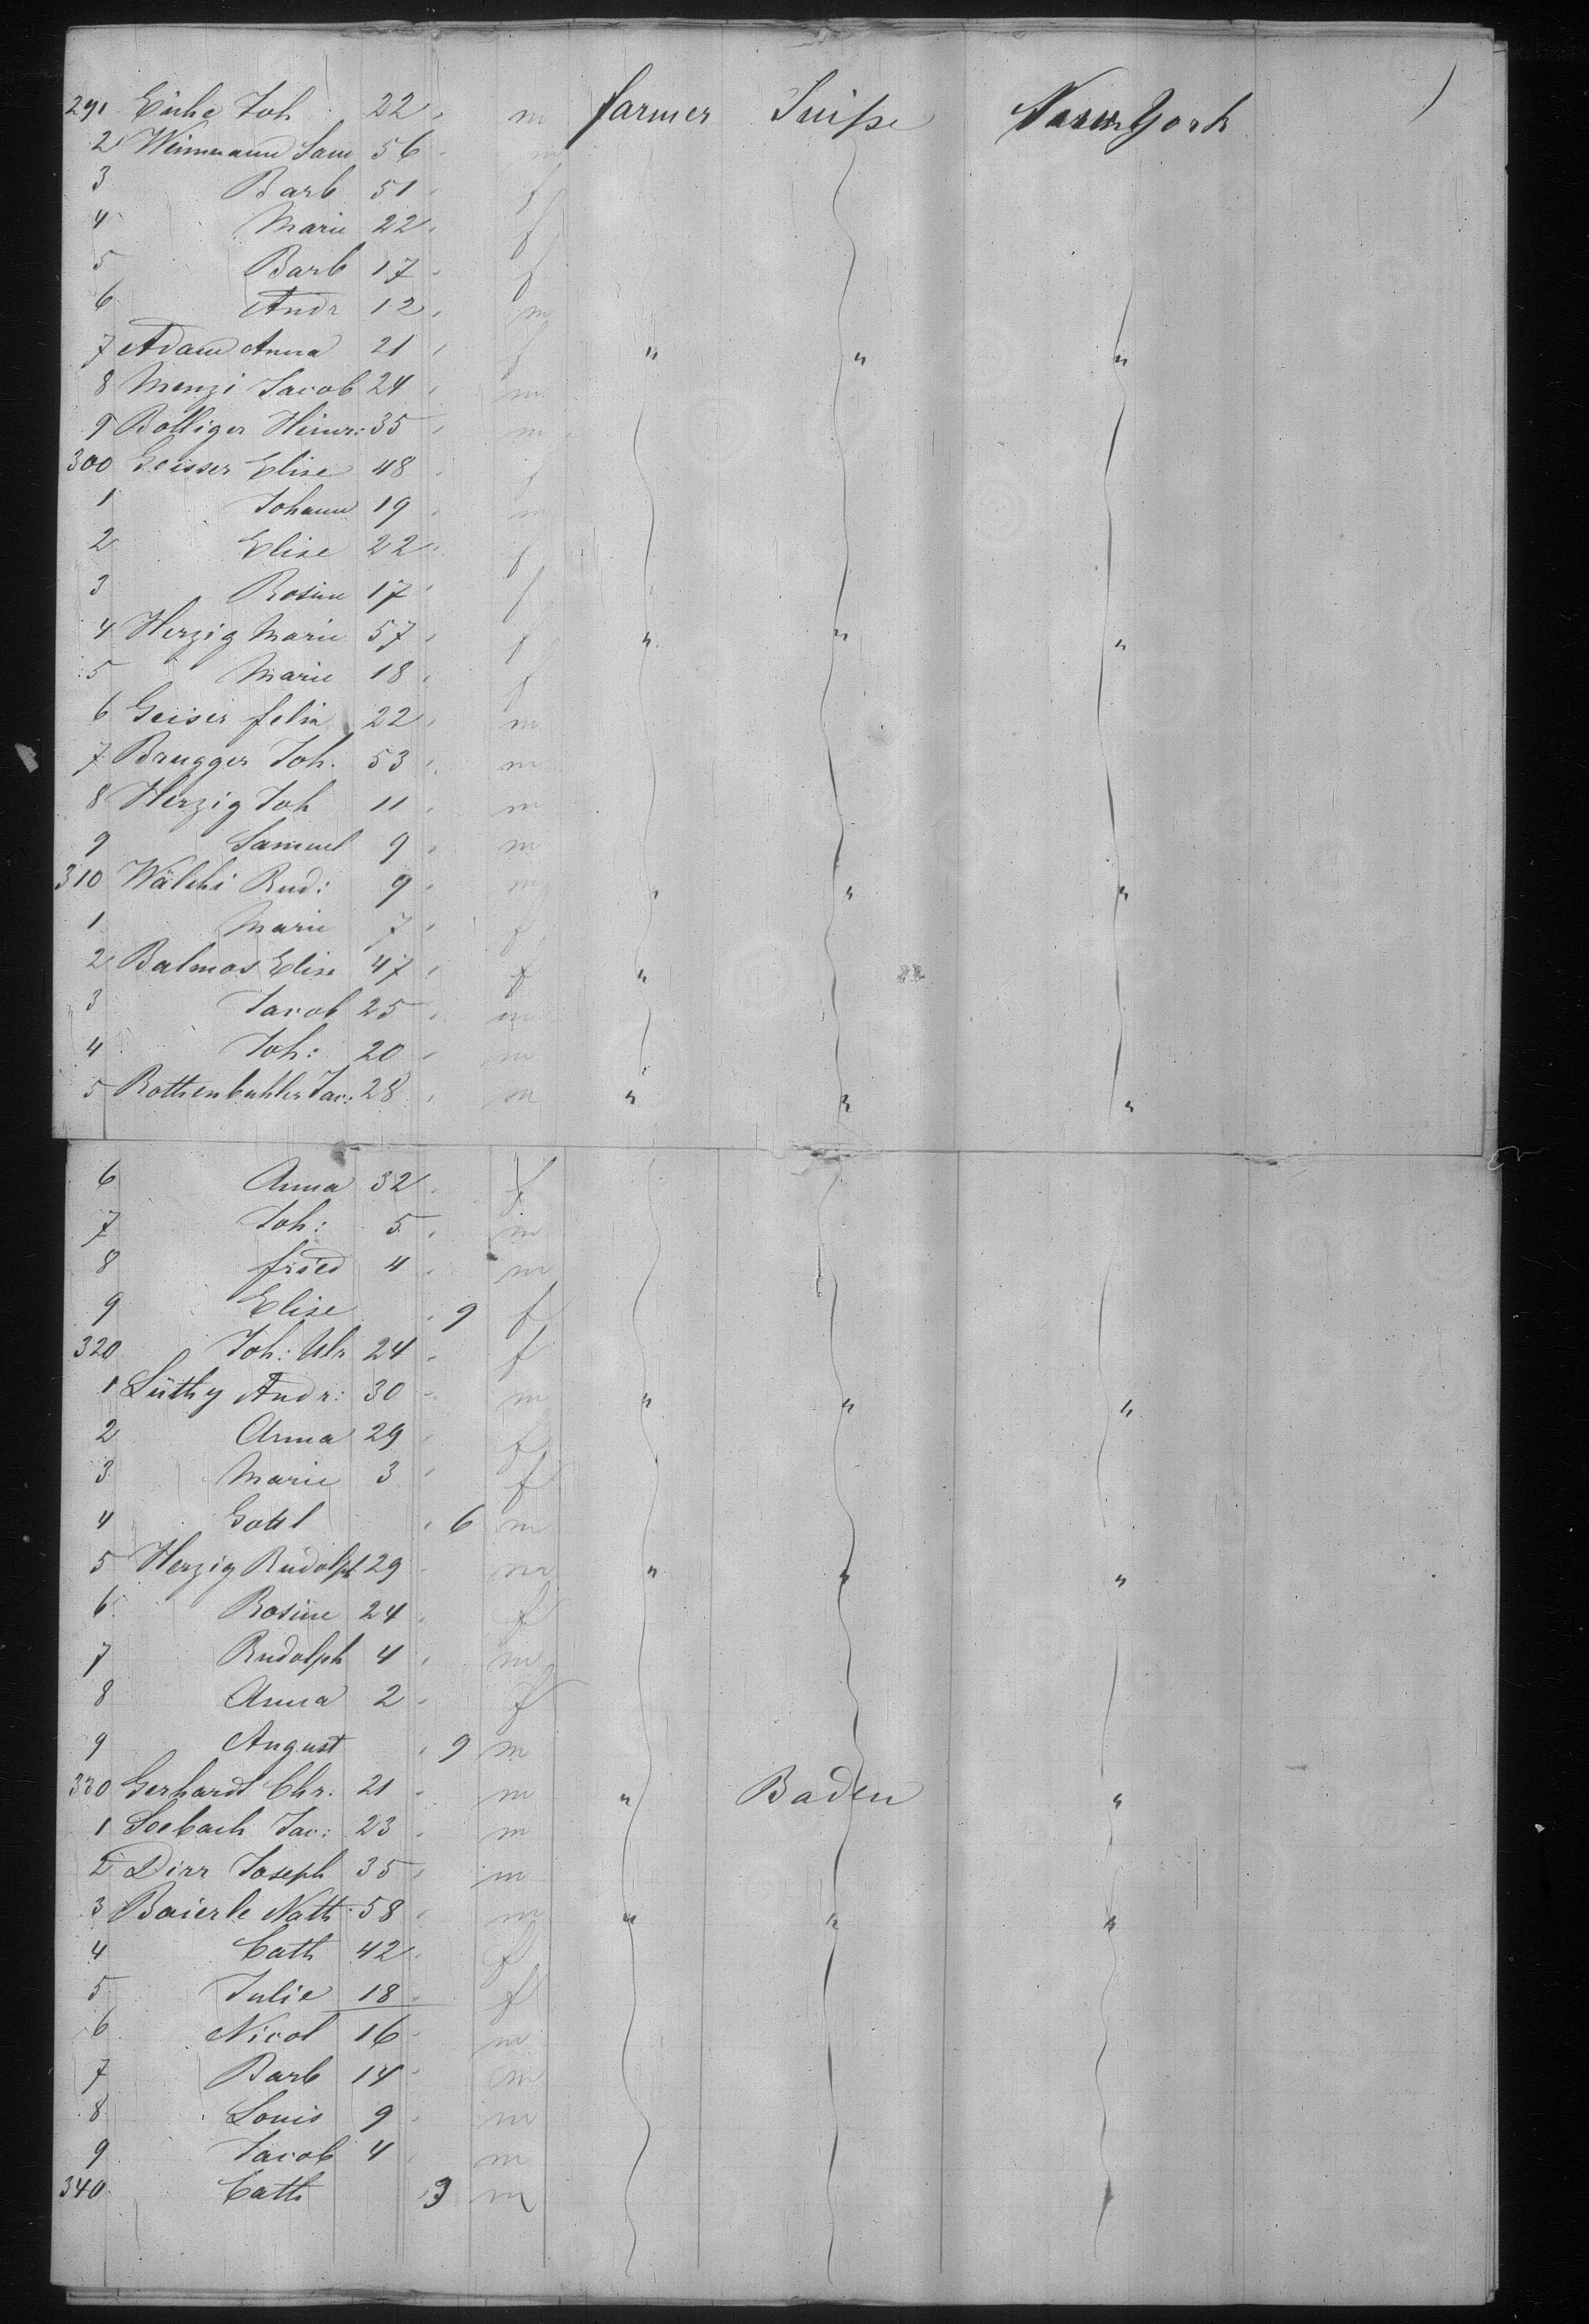 291 Eiche Joh 22 " m farmer Suisse New York
2 Weinmann Sam 56 " m
3 Barb 51 " f
4 Marie 22 " f
5 Barb 17 " f
6 Andr 12 " m
7 Adam Anna 21 " f " " "
8 Menzi Jacob 24 " m
9 Bolliger Heinr: 35 " m
300 Geisser Elise 48 " f
1 Johann 19 " m
2 Elise 22 " f
3 Rosine 17 " f
4 Herzig Marie 57 " f " " "
5 Marie 18 " f
6 Geiser felix 22 " m
7 Brugger Joh. 53 " m
8 Herzig Joh 11 " m
9 Samuel 9 " m
310 Wälchi Rud: 9 " m " " "
1 Marie 7 " f
2 Balmas Elise 47 " f "
3 Jacob 25 " m
4 Joh: 20 " m
5 Rothenbuhler Jac: 28 " m " " "
6 Anna 32 " f
7 Joh: 5 " m
8 fried 4 " m
9 Elise " 9 f
320 Joh: Ulr 24 " f
1 Lüthy Andr: 30 " m " " "
2 Anna 29 " f
3 Marie 3 " f
4 Gottl " 6 m
5 Herzig Rudolph 29 " m " " "
6 Rosine 24 " f
7 Rudolph 4 " m
8 Anna 2 " f
9 August " 9 m
330 Gerhardt Chr. 21 " m " Baden "
1 Seebach Jac: 23 " m
2 Dirr Joseph 35 " m
3 Baierle Nath 58 " m " " "
4 Cath 42 " f
5 Julie 18 " f
6 Nicol 16 " m
7 Barb 14 " m
8 Louis 9 " m
9 Jacob 4 " m
340 Cath " 9 m